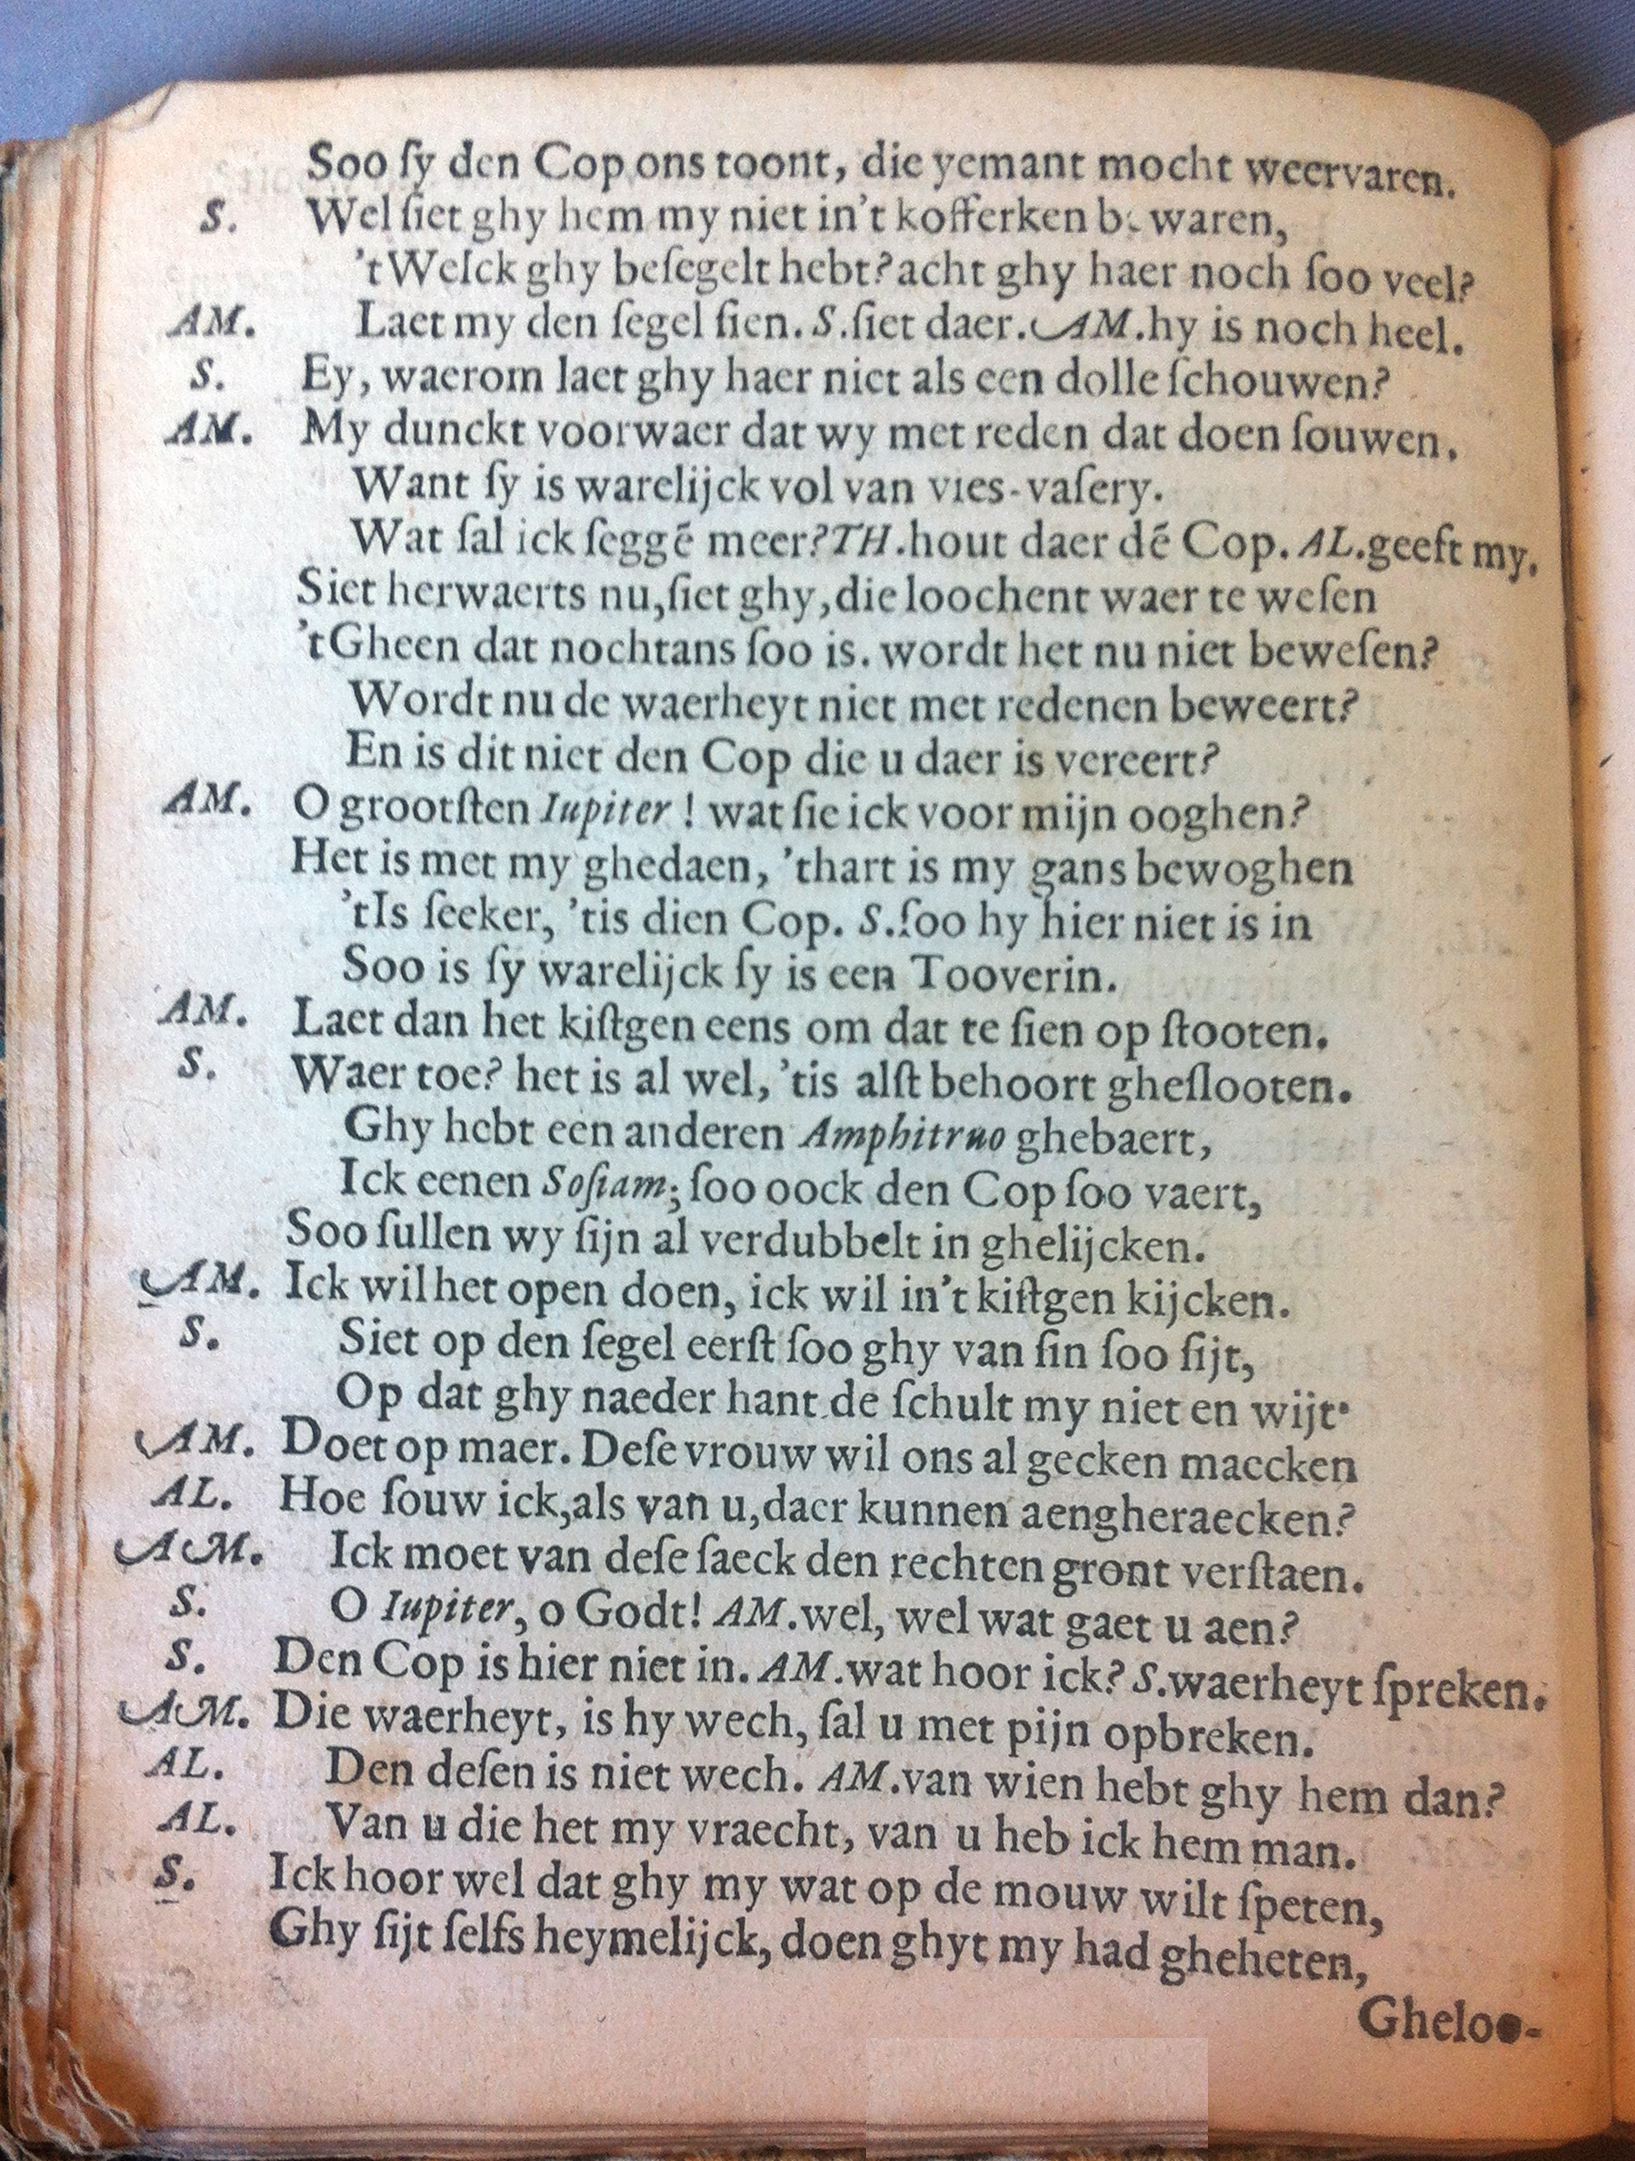 Soo ſy den Cop ons toont, die yemant mocht weervaren.
S. Wel ſiet ghy hem my niet in't kofferken b. waren,
'tWelck ghy beſegelt hebt? acht ghy haer noch ſoo veel?
AM. Laet my den ſegel ſien. S. ſiet daer. AM. hy is noch heel.
S. Ey, waerom laet ghy haer niet als een dolle ſchouwen?
AM. My dunckt voorwaer dat wy met reden dat doen ſouwen.
Want ſy is warelijck vol van vies-vaſery.
Wat ſal ick ſeggē meer? TH. hout daer dē Cop. AL. geeft my.
Siet herwaerts nu, ſiet ghy, die loochent waer te weſen
'tGheen dat nochtans ſoo is. wordt het nu niet beweſen?
Wordt nu de waerheyt niet met redenen beweert?
En is dit niet den Cop die u daer is vereert?
AM. O grootſten Iupiter! wat ſie ick voor mijn ooghen?
Het is met my ghedaen, 'thart is my gans bewoghen
'tIs ſeeker, 'tis dien Cop. S. ſoo hy hier niet is in
Soo is ſy warelijck ſy is een Tooverin.
AM. Laet dan het kiſtgen eens om dat te ſien op ſtooten.
S. Waer toe? het is al wel, 'tis alſt behoort gheſlooten.
Ghy hebt een anderen Amphitruo ghebaert,
Ick eenen Soſiam; ſoo oock den Cop ſoo vaert,
Soo ſullen wy ſijn al verdubbelt in ghelijcken.
AM. Ick wil het open doen, ick wil in't kiſtgen kijcken.
S. Siet op den ſegel eerſt ſoo ghy van ſin ſoo ſijt,
Op dat ghy naeder hant de ſchult my niet en wijt.
AM. Doet op maer. Deſe vrouw wil ons al gecken maecken
AL. Hoe ſouw ick, als van u, daer kunnen aengheraecken?
AM. Ick moet van deſe ſaeck den rechten gront verſtaen.
S. O Iupiter, o Godt! AM. wel, wel wat gaet u aen?
S. Den Cop is hier niet in. AM. wat hoor ick? S. waerheyt ſpreken.
AM. Die waerheyt, is hy wech, ſal u met pijn opbreken.
AL. Den deſen is niet wech. AM. van wien hebt ghy hem dan?
AL. Van u die het my vraecht, van u heb ick hem man.
S. Ick hoor wel dat ghy my wat op de mouw wilt ſpeten,
Ghy ſijt ſelfs heymelijck, doen ghyt my had gheheten,
Gheloo-